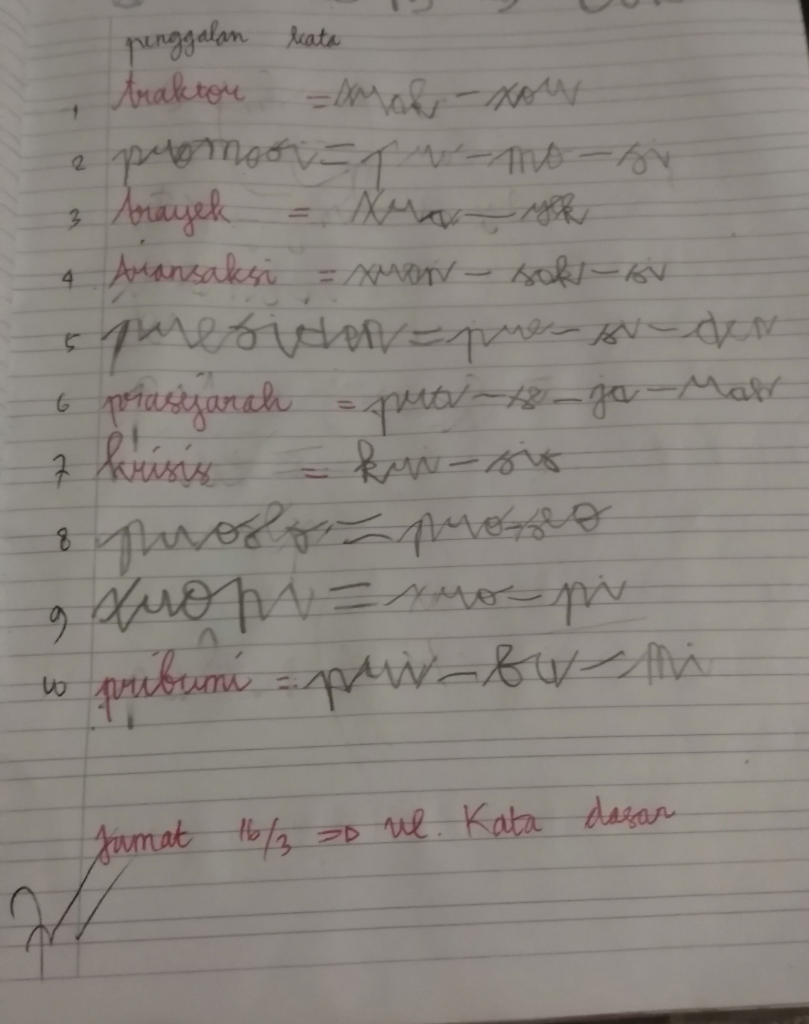 penggalan kata
1 traktor = trak - tor
2 promosi = pro - mo - si
3 trayek = tra - yek
4 transaksi = tran - sak - si
5 presiden = pre - si - den
6 prasejarah = pra - se - ja - rah
7 krisis = kri - sis
8
9 tropi = tro - pi
10 pribumi = pri - bu - mi
Jumat 16/3 => ul. Kata dasar